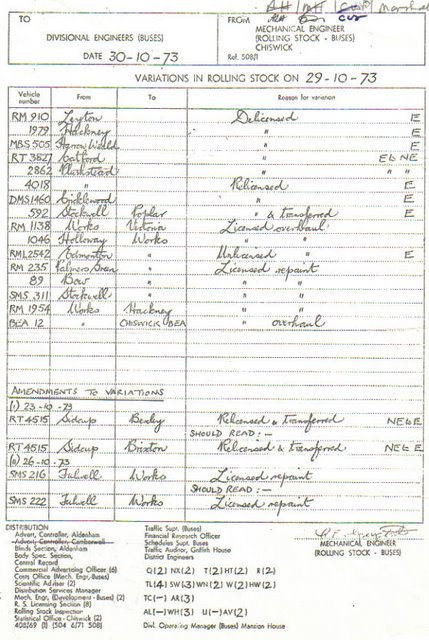 TO
DIVISIONAL ENGINEERS (BUSES)
DATE 30-10-73
FROM
MECHANICAL ENGINEER
(ROLLING STOCK - BUSES)
CHISWICK
Ref. 508/1
VARIATIONS IN ROLLING STOCK ON 29-10-73
Vehicle number From To Reason for variation
RM 910 Leyton Delicensed E
1979 Hackney " E
MBS 505 Harrow Weald " E
RT 3827 Catford " E & NE
2862 Plumstead " " "
4018 " Relicensed E
DMS 1460 Cricklewood " E
592 Stockwell Poplar " & transferred E
RM 1138 Works Victoria Licensed overhaul
1046 Holloway Works " "
RML 2542 Edmonton " Unlicensed " E
RM 235 Palmers Green " Licensed repaint
89 Bow " " "
SMS 311 Stockwell " " "
RM 1954 Works Hackney " "
BEA 12 " CHISWICK BEA " overhaul
AMENDMENTS TO VARIATIONS
(1) 23-10-73
RT 4515 Sidcup Bexley Relicensed & transferred NE & E
SHOULD READ :-
RT 4515 Sidcup Brixton Relicensed & transferred NE & E
26-10-73
SMS 216 Fulwell Works Licensed repaint
SHOULD READ :-
SMS 222 Fulwell Works Licensed repaint
MECHANICAL ENGINEER
(ROLLING STOCK - BUSES)
DISTRIBUTION
Advert. Controller, Aldenham
Advert. Controller, Camberwell
Blinds Section, Aldenham
Body Spec. Section,
Central Record
Commercial Advertising Officer (6)
Costs Office (Mech. Engr. Buses)
Scientific Adviser (2)
Distribution Services Manager
Mech. Engr. (Development - Buses) (2)
R. S. Licensing Section (8)
Rolling Stock Inspection
Statistical Office - Chiswick (2)
408/69 (1) (504 6/71 508)
Traffic Supt. (Buses)
Financial Research Officer
Schedules Supt. Buses
Traffic Auditor, Griffith House
District Engineers
Q(2) NX(2) T(2) HT(2) R(2)
TL(4) SW(3) WN(2) W(2) HW(2)
TC(-) AR(3)
AL(-) WH(3) U(-) AV(2)
Divl. Operating Manager (Buses) Mansion House